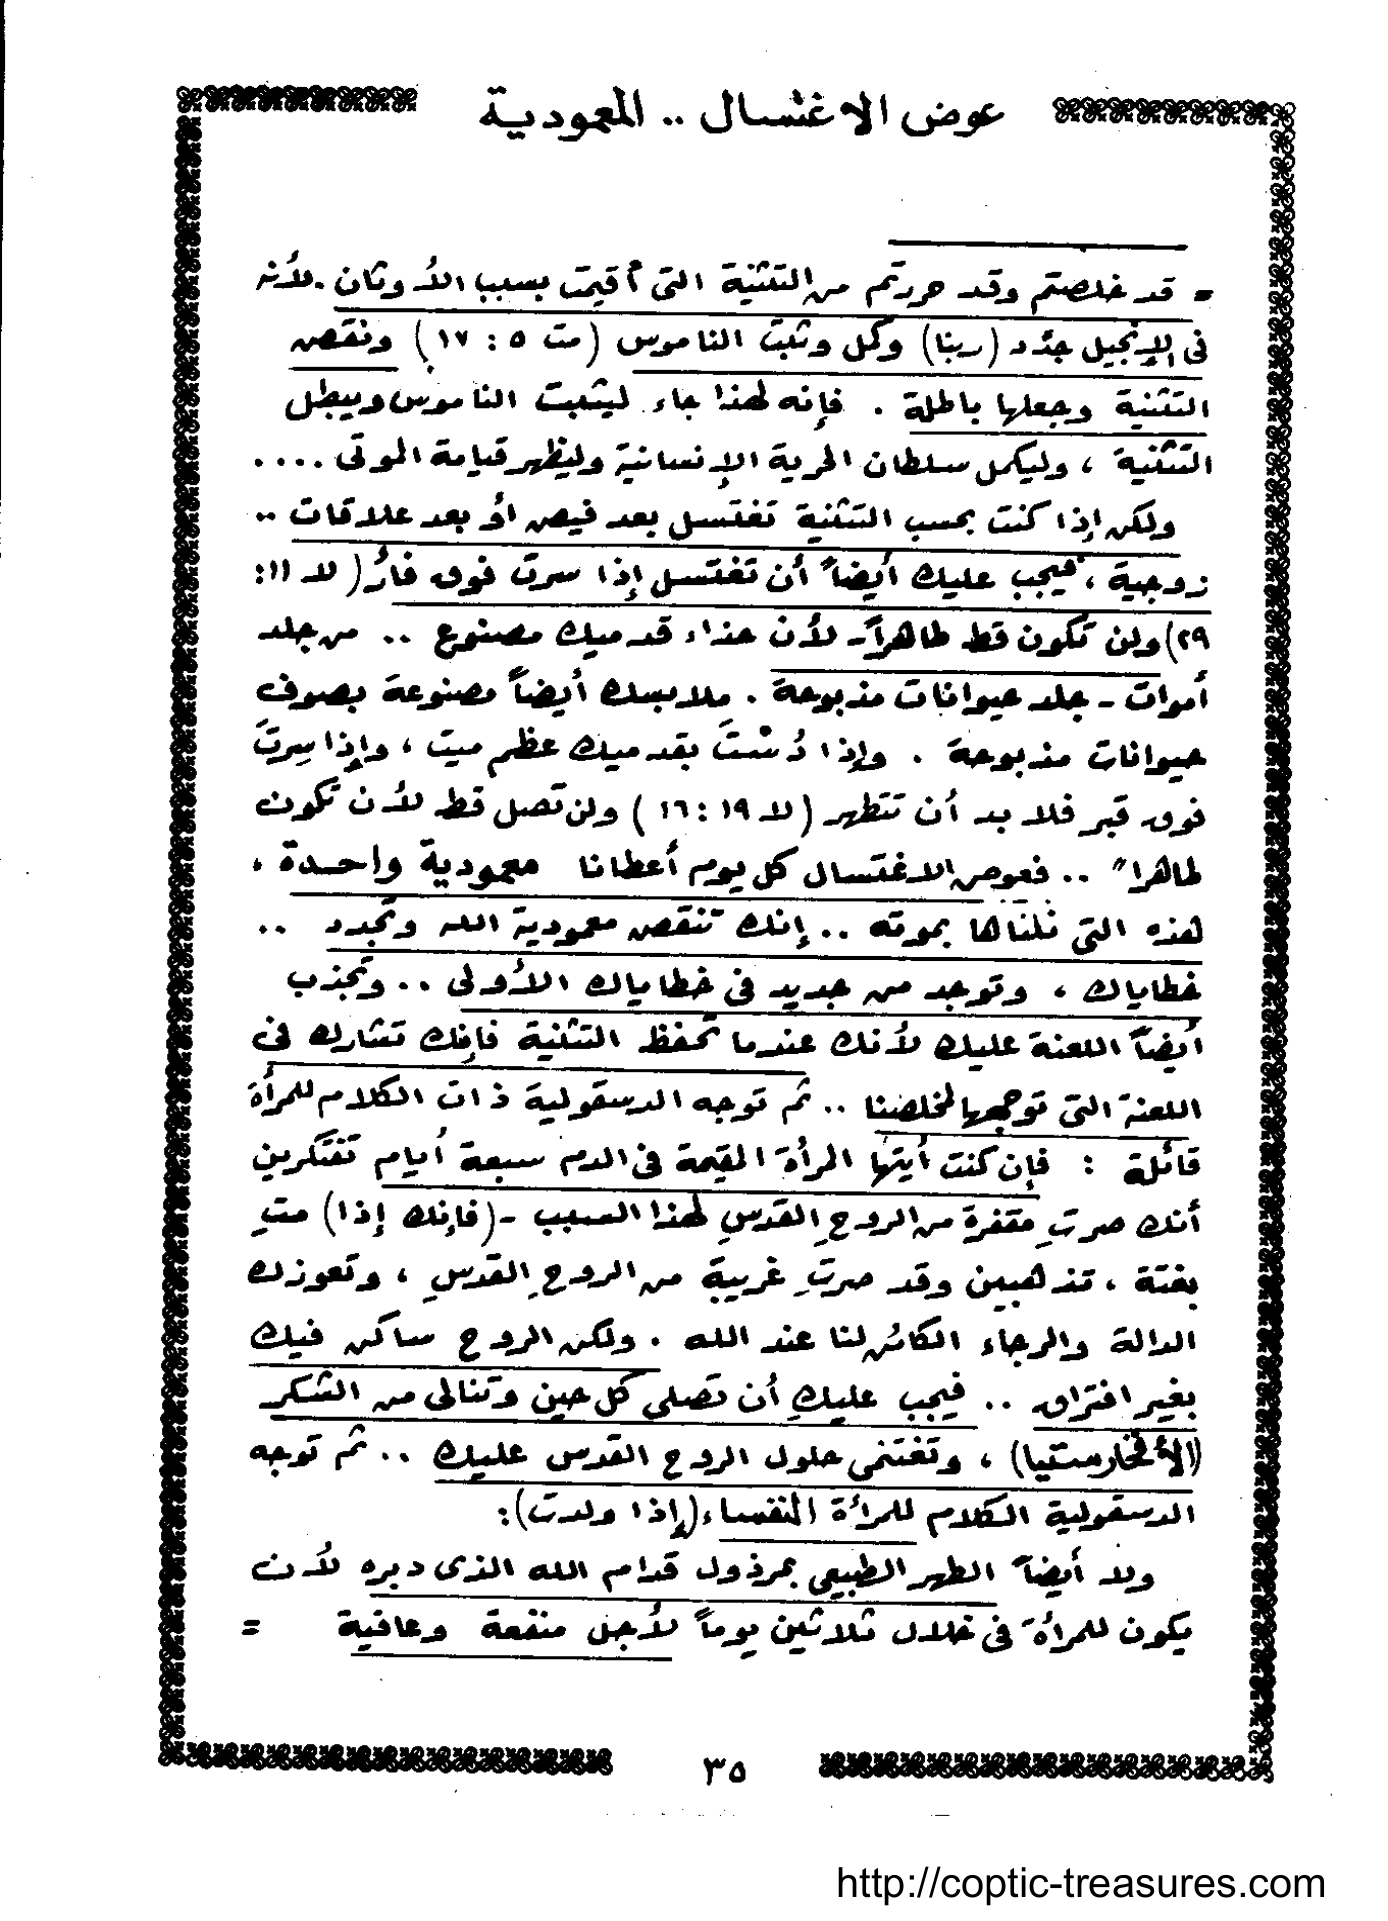 عوض الاغتسال .. المعمودية
= قد خلصتم وقد حررتم من التثنية التى أقيمت بسبب الأوثان . لأنه
فى الإنجيل جدّد (ربنا) وكمل وثبت الناموس (مت ٥ : ١٧) ونقص
التثنية وجعلها باطلة . فإنه لهذا جاء ليثبت الناموس ويبطل
التثنية ، وليكمل سلطان الحرية الإنسانية وليظهر قيامة الموتى ....
ولكن إذا كنت بحسب التثنية تغتسل بعد فيض أو بعد علاقات ..
زوجية ، فيجب عليك أيضاً أن تغتسل إذا سرت فوق فأر (لا ١١:
٢٩) ولن تكون قط طاهراً - لأن حذاء قدميك مصنوع .. من جلد
أموات - جلد حيوانات مذبوحة . ملابسك أيضاً مصنوعة بصوف
حيوانات مذبوحة . وإذا دُسْتَ بقدميك عظم ميت ، وإذا سِرتَ
فوق قبر فلا بد أن تتطهر (لا ١٩ : ١٦) ولن تصل قط لأن تكون
طاهراً .. فعوض الاغتسال كل يوم أعطانا معمودية واحدة ،
هذه التى نلناها بموته .. إنك تنقض معمودية الله وتجدد ..
خطاياك ، وتوجد من جديد فى خطاياك الأولى .. وتجذب
أيضاً اللعنة عليك لأنك عندما تحفظ التثنية فإنك تشارك فى
اللعنة التى توجهها لمخلصنا .. ثم توجه الدسقولية ذات الكلام للمرأة
قائلة : فإن كنت أيتها المرأة المقيمة فى الدم سبعة أيام تفتكرين
أنك صرتِ مقفرة من الروحِ القدسِ لهذا السبب - (فإنك إذا) متِ
بغتة ، تذهبين وقد صرتِ غريبة من الروحِ القدسِ ، وتعوزك
الدالة والرجاء الكائن لنا عند الله . ولكن الروح ساكن فيك
بغير افتراق .. فيجب عليكِ أن تصلى كل حين وتنالى من الشكر
(الأفخارستيا) ، وتغتنمى حلول الروح القدس عليك .. ثم توجه
الدسقولية الكلام للمرأة النفساء ، (إذا ولدت) :
ولا أيضاً الطهر الطبيعى بمرذول قدام الله الذى دبره لأن
يكون للمرأة فى خلال ثلاثين يوماً لأجل منفعة وعافية =
٣٥
http://coptic-treasures.com